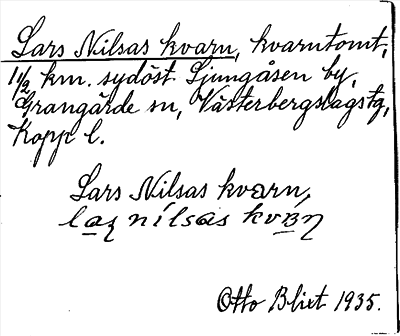 Lars Nilsas kvarn, kvarntomt,
1 1/2 km. sydöst Ljungåsen by,
Grangärde sn, Västerbergslags tg,
Kopp l.
Lars Nilsas kvarn,
laʂ nílsas kvąʹɳ
Otto Blixt 1935.